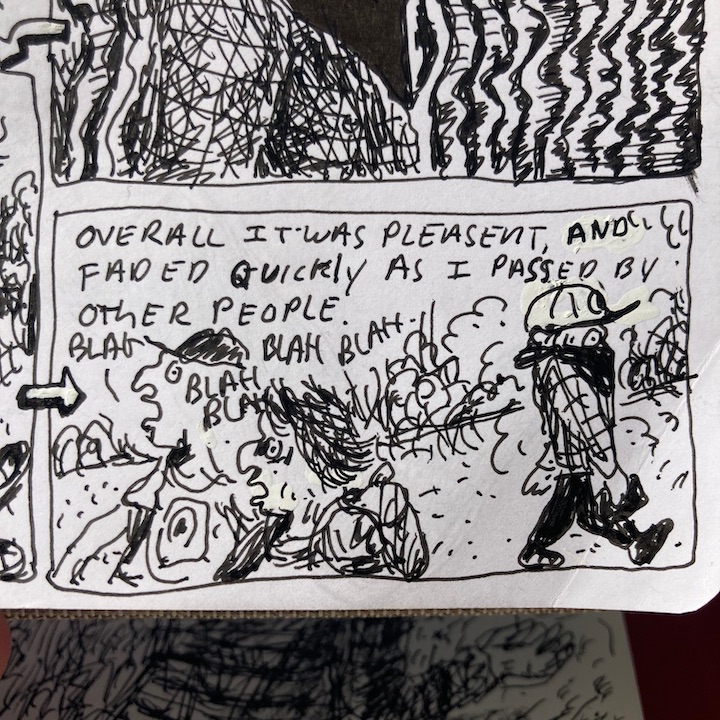 OVERALL IT WAS PLEASENT, AND
FADED QUICKLY AS I PASSED BY
OTHER PEOPLE.
BLAH
BLAH BLAH
BLAH
BLAH